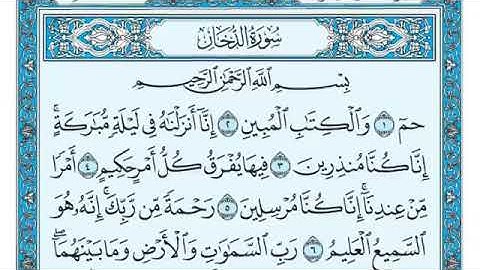 سُورَةُ الدُّخَانِ
بِسْمِ اللَّهِ الرَّحْمَٰنِ الرَّحِيمِ
حمٓ ١ وَالْكِتَابِ الْمُبِينِ ٢ إِنَّا أَنزَلْنَاهُ فِي لَيْلَةٍ مُّبَارَكَةٍ ۚ
إِنَّا كُنَّا مُنذِرِينَ ٣ فِيهَا يُفْرَقُ كُلُّ أَمْرٍ حَكِيمٍ ٤ أَمْرًا
مِّنْ عِندِنَا ۚ إِنَّا كُنَّا مُرْسِلِينَ ٥ رَحْمَةً مِّن رَّبِّكَ ۚ إِنَّهُ هُوَ
السَّمِيعُ الْعَلِيمُ ٦ رَبِّ السَّمَاوَاتِ وَالْأَرْضِ وَمَا بَيْنَهُمَا ۖ